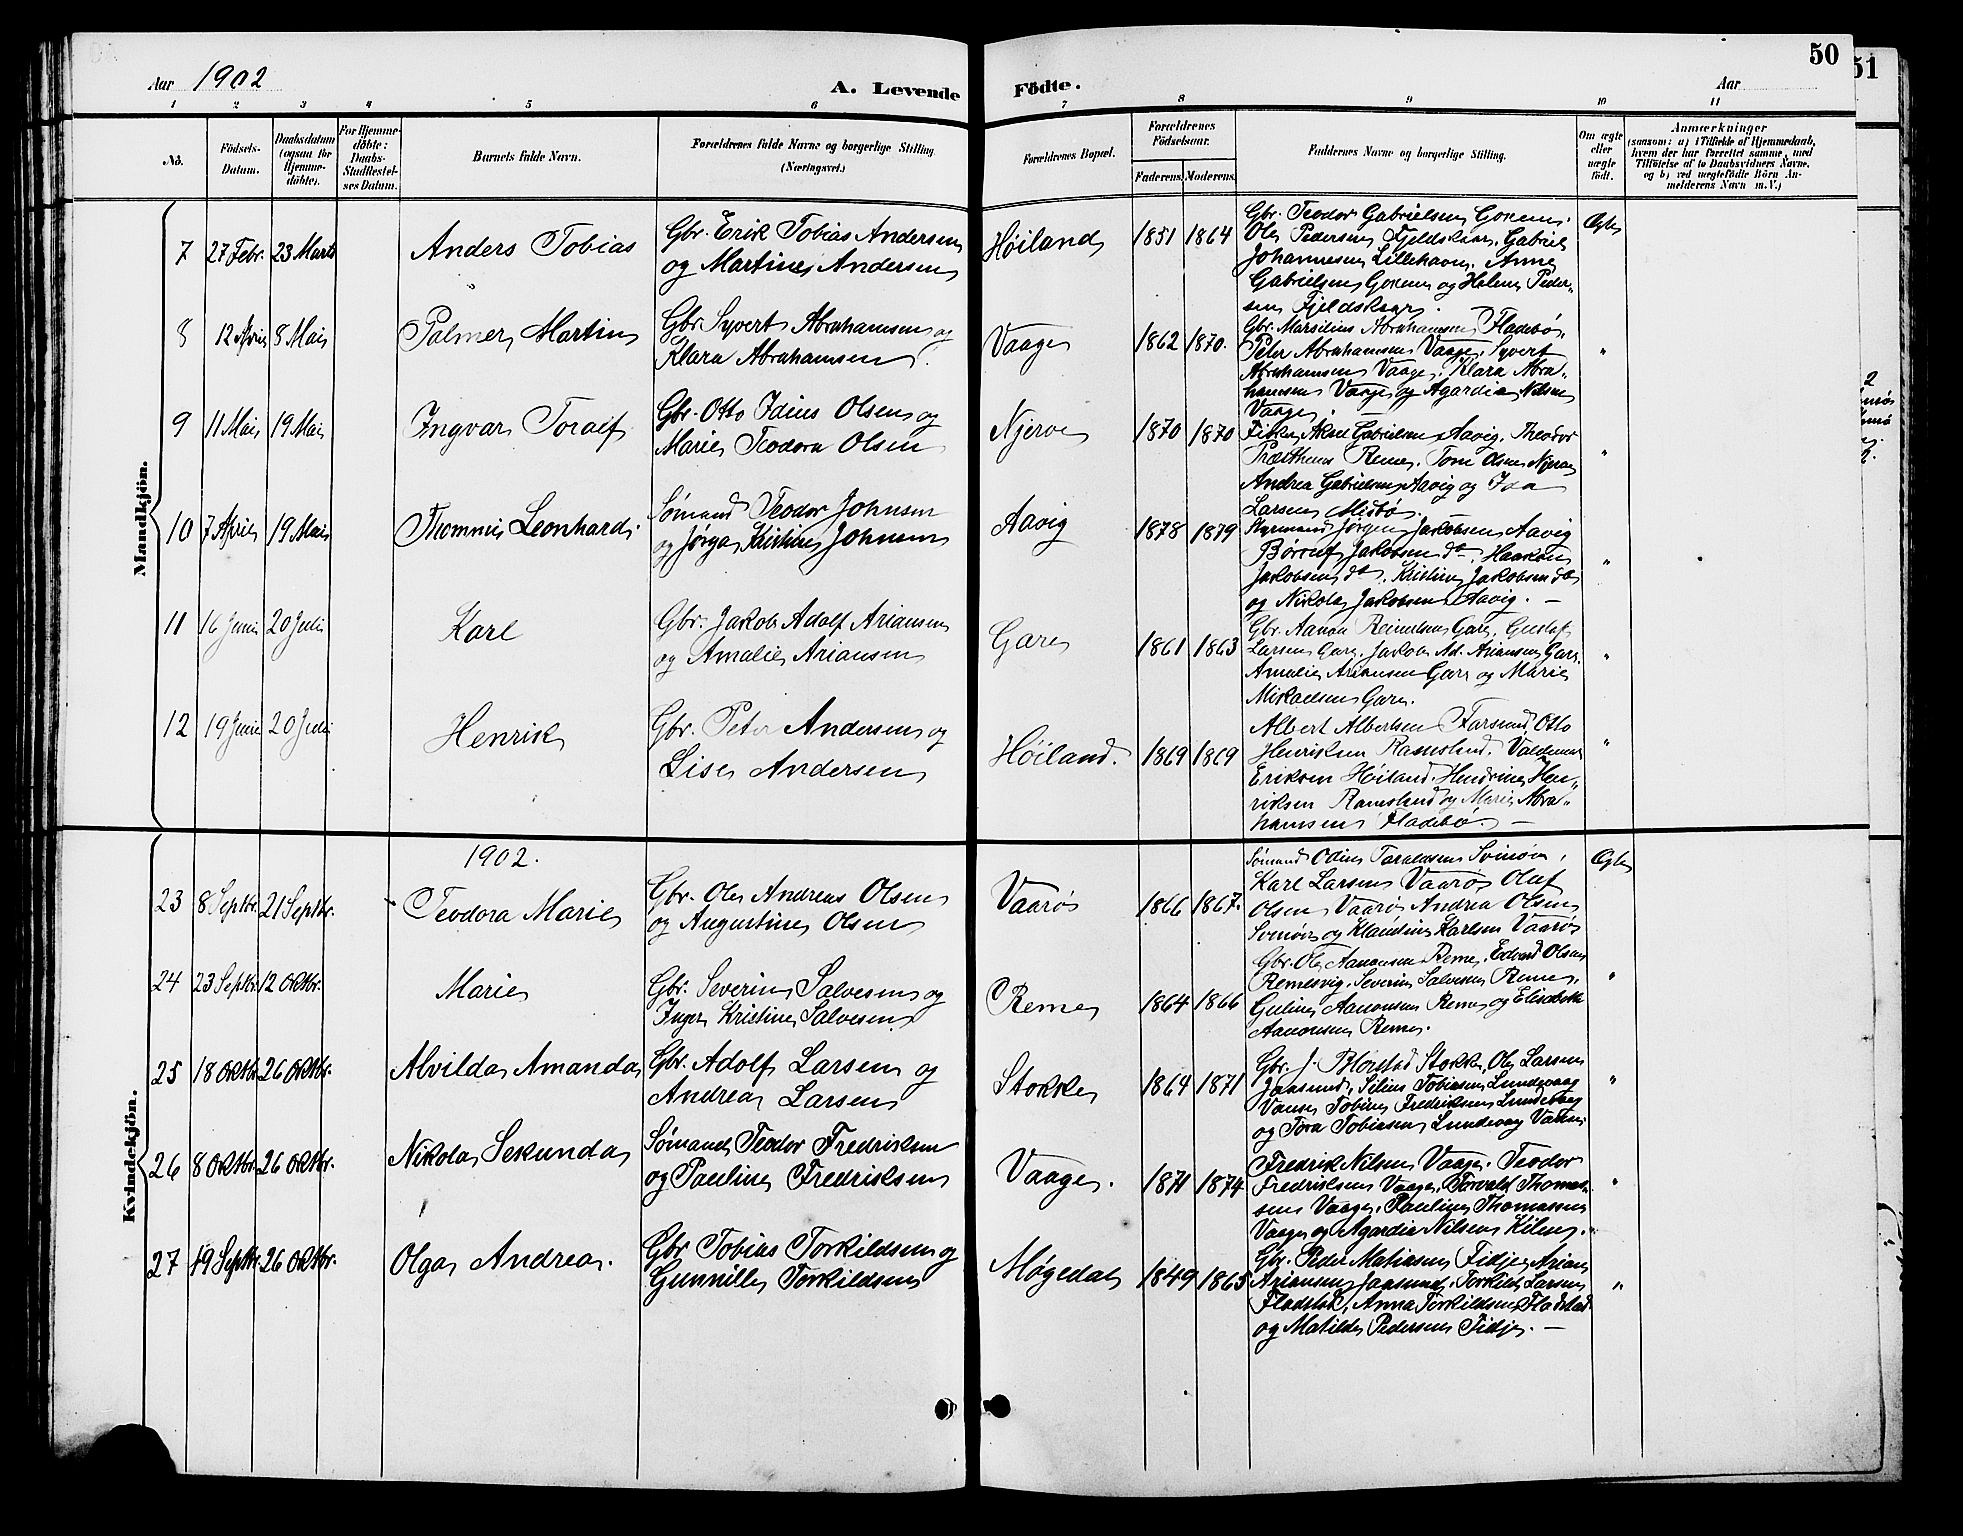 50
51
Aar 1902
A. Levende
Födte.
Aar
1 2 3 4 5 6 7 8 9 10 11
No.
Födsels-
Datum.
Daabsdatum
(ogsaa for
Hjemme-
döbte).
For Hjemme-
döbte:
Daabs-
Stadfæstel-
ses Datum.
Barnets fulde Navn.
Forældrenes fulde Navne og borgerlige Stilling
(Næringsvei.)
Forældrenes Bopæl.
Forældrenes
Födselsaar.
Faderens. Moderens.
Faddernes Navne og borgerlige Stilling.
Om ægte
eller
uægte
født.
Anmærkninger
(saasom: a) i Tilfælde af Hjemmedaab,
hvem der har forrettet samme, med
Tilföielse af to Daabsvidners Navne,
og b) ved uægtefödte Börn An-
melderens Navn m. V.)
Mandkjön.
7 27 Febr. 23 Marts Anders Tobias
Gbr. Erik Tobias Andersen
og Martine Andersen
Høiland 1851 1864
Gbr. Teodor Gabrielsen
Ole Pedersen Fjeldskaar, Gabriel
Johannesen Lillehavn, Anne
Gabrielsen og Helene Peder-
sen Fjeldskaar.
Ægte
8 12 April 8 Mai Palmer Martin
Gbr. Syvert Abrahamsen og
Klara Abrahamsen.
Vaage 1862 1870.
Gbr. Marsilius Abrahamsen Fladebø,
Peter Abrahamsen Vaage, Syvert
Abrahamsen Vaage, Klara Abra-
hamsen Vaage og Agardia Nilsen
Vaage.
"
9 11 Mai 19 Mai Ingvar Toralf
Gbr. Otto Idius Olsen og
Marie Teodora Olsen
Njerve 1870 1870
Fisker Aksel Gabrielsen Aavig, Theodor
Remes, Tom Olsen Njerve
Andrea Gabrielsen Aavig og Ida
Larsen Midbø.
"
10 7 April 19 Mai Thommis Leonhard
Sømand Teodor Johnsen
og Jørga Kristine Johnsen
Aavig 1878 1879
Styrmand Jørgen Jakobsen Aavig
Jakobsen do, Haakon
Jakobsen do, Kristine Jakobsen do
og Nikolai Jakobsen Aavig. —
"
11 16 Juni 20 Juli Karl
Gbr. Jakob Adolf Ariansen
og Amalie Ariansen
Gare 1861 1863
Gbr. Aanon Reinertsen Gare, Gustaf
Larsen Gare, Jakob Ad. Ariansen Gare,
Amalie Ariansen Gare og Marie
Mikaelsen Gare.
"
12 19 Juni 20 Juli Henrik
Gbr. Peter Andersen og
Lise Andersen
Høiland. 1869 1869
Albert Albertsen Farsund, Otto
Henriksen Ramsland, Valdemar
Eriksen Høiland, Hendrine Hen-
riksen Ramsland og Marie Abra-
hamsen Fladebø. —
"
Kvindekjön.
1902.
23 8 Septbr. 21 Septbr. Teodora Marie
Gbr. Ole Andreas Olsen
og Augustine Olsen
Vaarøs 1866 1867.
Sømand Odin Taraldsen Svinøer,
Karl Larsen Vaarøs Oluf
Olsen Vaarøs Andrea Olsen
Svinøer og Klaudine Karlsen Vaarøs
Ægte
24 23 Septbr. 12 Oktbr. Marie
Gbr. Severin Salvesen og
Inger Kristine Salvesen
Reme 1864 1866
Gbr. Ole Aanonsen Reme, Edvard Olsen
Remesvig, Severin Salvesen Reme,
Guline Aanonsen Reme og Elisabeth
Aanonsen Reme.
"
25 18 Oktbr. 26 Oktbr. Alvilda Amanda
Gbr. Adolf Larsen og
Andrea Larsen
Stokke 1864 1871
Gbr. J. Blørstad Stokke, Ole Larsen
Jaasund, Silius Tobiasen Lundevaag
Vanse Tobine Fredriksen Lundevaag
og Tora Tobiasen Lundevaag Vanse
"
26 8 Oktbr. 26 Oktbr. Nikola Sekunda
Sømand Teodor Fredriksen
og Pauline Fredriksen
Vaage. 1871 1874
Fredrik Nilsen Vaage, Teodor
Fredriksen Vaage, Torvald Thomas-
sen Vaage, Pauline Thomassen
Vaage og Agardia Nilsen Kilen.
"
27 19 Septbr. 26 Oktbr. Olga Andrea.
Gbr. Tobias Torkildsen og
Gunnille Torkildsen
Møgedal 1849 1865
Gbr. Peder Matiasen Fidje, Arian
Ariansen Jaasund, Torkild Larsen
Fladstad, Anna Torkildsen Fladstad
og Matilde Pedersen Fidje. —
"